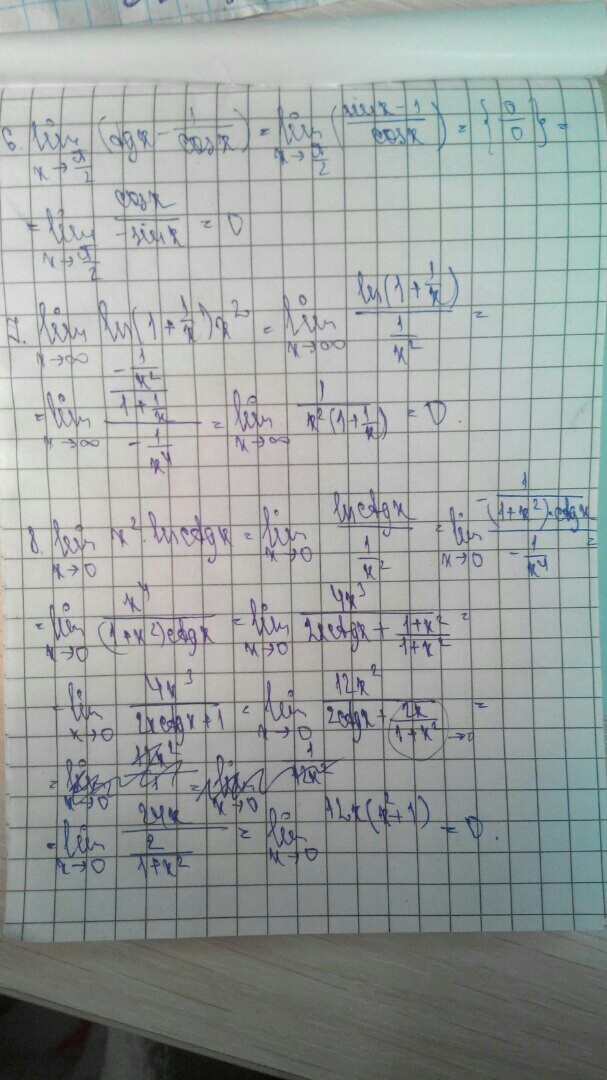 6. lim x→π/2 (tgx - 1/cosx) = lim x→π/2 ((sinx - 1)/cosx) = {0/0} =
= lim x→π/2 cosx/(-sinx) = 0
7. lim x→∞ ln(1 + 1/x) x² = lim x→∞ ln(1 + 1/x)/(1/x²) =
= lim x→∞ ((-1/x²)/(1 + 1/x))/(-1/x⁴) = lim x→∞ 1/(x²(1 + 1/x)) = 0.
8. lim x→0 x² · ln ctgx = lim x→0 ln ctgx/(1/x²) = lim x→0 (-1/((1+x²)·ctgx))/(-1/x⁴) =
= lim x→0 x⁴/((1+x²)ctgx) = lim x→0 4x³/(2xctgx + (1+x²)/(1+x²)) =
= lim x→0 4x³/(2xctgx + 1) = lim x→0 12x²/(2ctgx + 2x/(1+x²)) →0 =
= lim x→0 24x/(2/(1+x²)) = lim x→0 12x(x²+1) = 0.